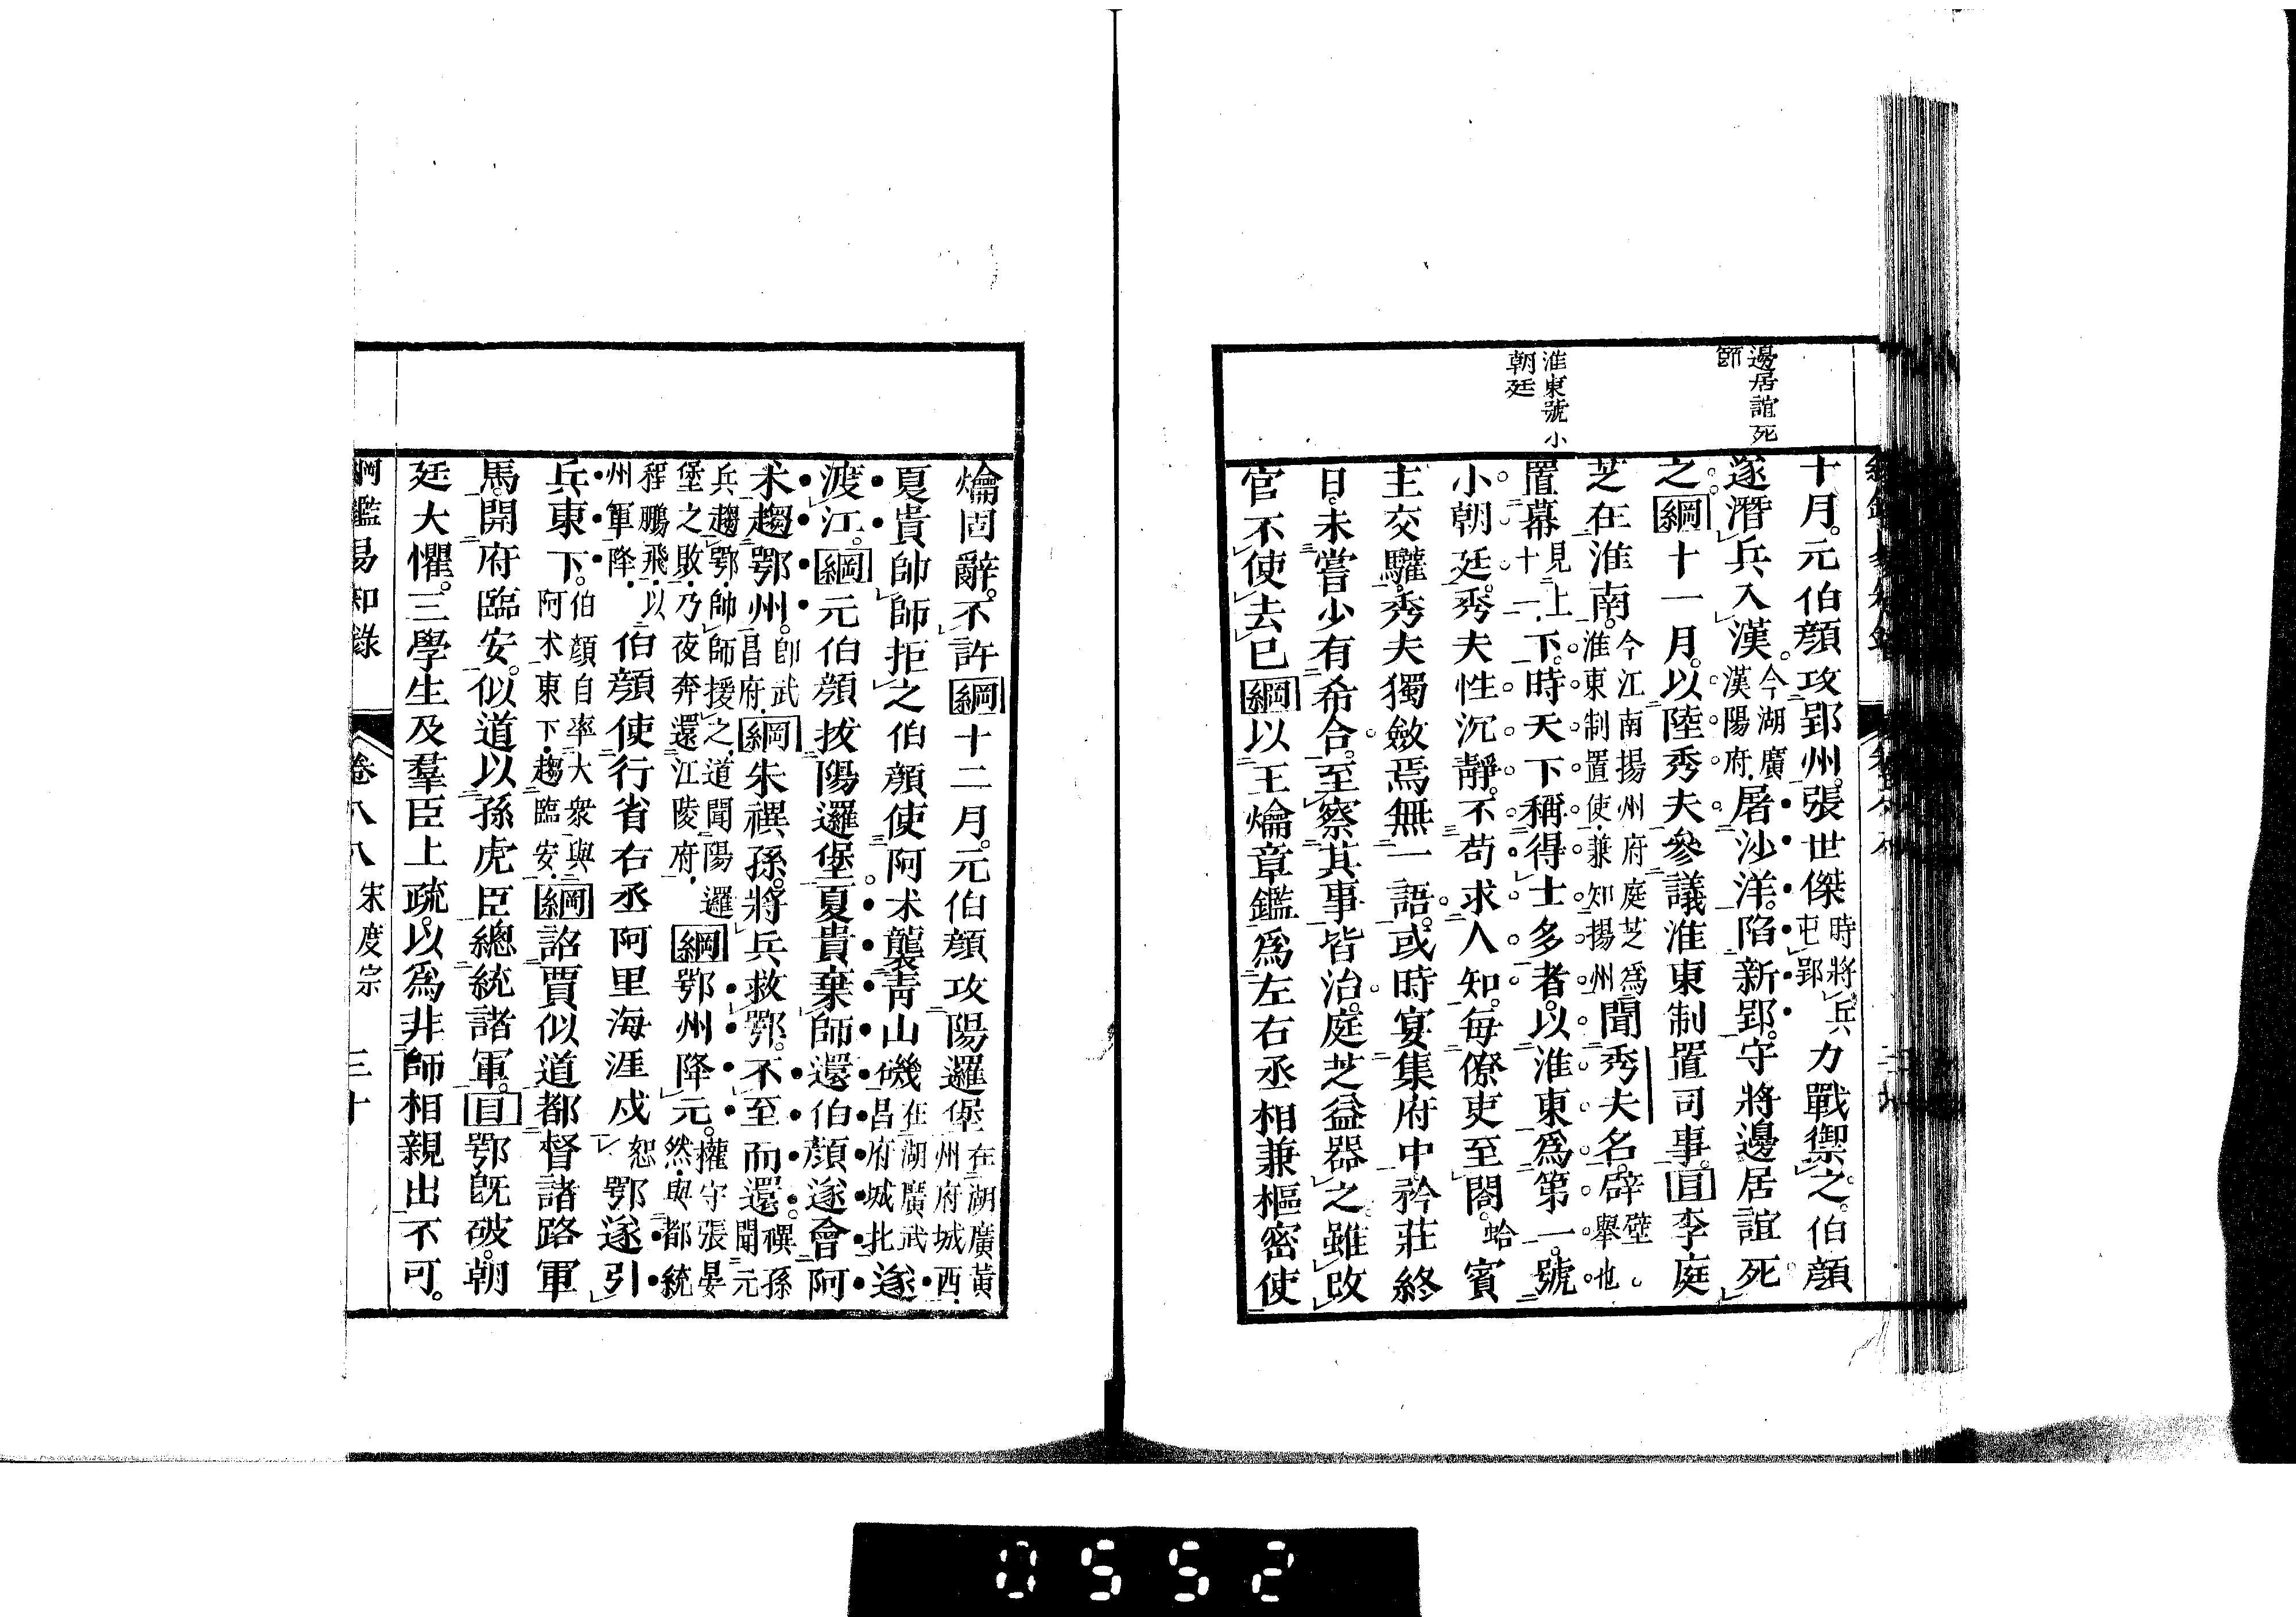 邊居誼死
節
淮東號小
朝廷
十月。元伯顏攻郢州。張世傑時將兵屯郢力戰禦之。伯顏
遂潛兵入漢。今湖廣漢陽府屠沙洋。陷新郢。守將邊居誼死
之綱十一月。以陸秀夫參議淮東制置司事。目李庭
芝在淮南。今江南揚州府庭芝為淮東制置使兼知揚州聞秀夫名。辟壁舉也
置幕見上十一下。時天下稱得士多者。以淮東爲第一。號
小朝廷。秀夫性沉靜。不苟求人知。每僚吏至閤。蛤賓
主交驩。秀夫獨斂焉無一語。或時宴集府中矜莊終
日。未嘗少有希合。至察其事皆治。庭芝益器之雖改
官不使去已綱以王爚章鑑爲左右丞相兼樞密使
爚固辭。不許綱十二月。元伯顏攻陽邏堡在湖廣黃州府城西
夏貴帥師拒之伯顏使阿朮襲青山磯在湖廣武昌府城北遂
渡江。綱元伯顏拔陽邏堡夏貴棄師還伯顏遂會阿
朮趨鄂州。卽武昌府綱朱禩孫將兵救鄂。不至而還。禩孫聞元
兵趨鄂帥師援之道聞陽邏堡之敗乃夜奔還江陵府綱鄂州降元。權守張晏然與都統
程鵬飛以州軍降伯顏使行省右丞阿里海涯戍恕鄂遂引
兵東下。伯顏自率大衆與阿朮東下趨臨安綱詔賈似道都督諸路軍
馬。開府臨安。似道以孫虎臣總統諸軍。目鄂旣破。朝
廷大懼。三學生及羣臣上疏。以爲非師相親出不可。
綱鑑易知錄 卷八八 宋度宗 三十